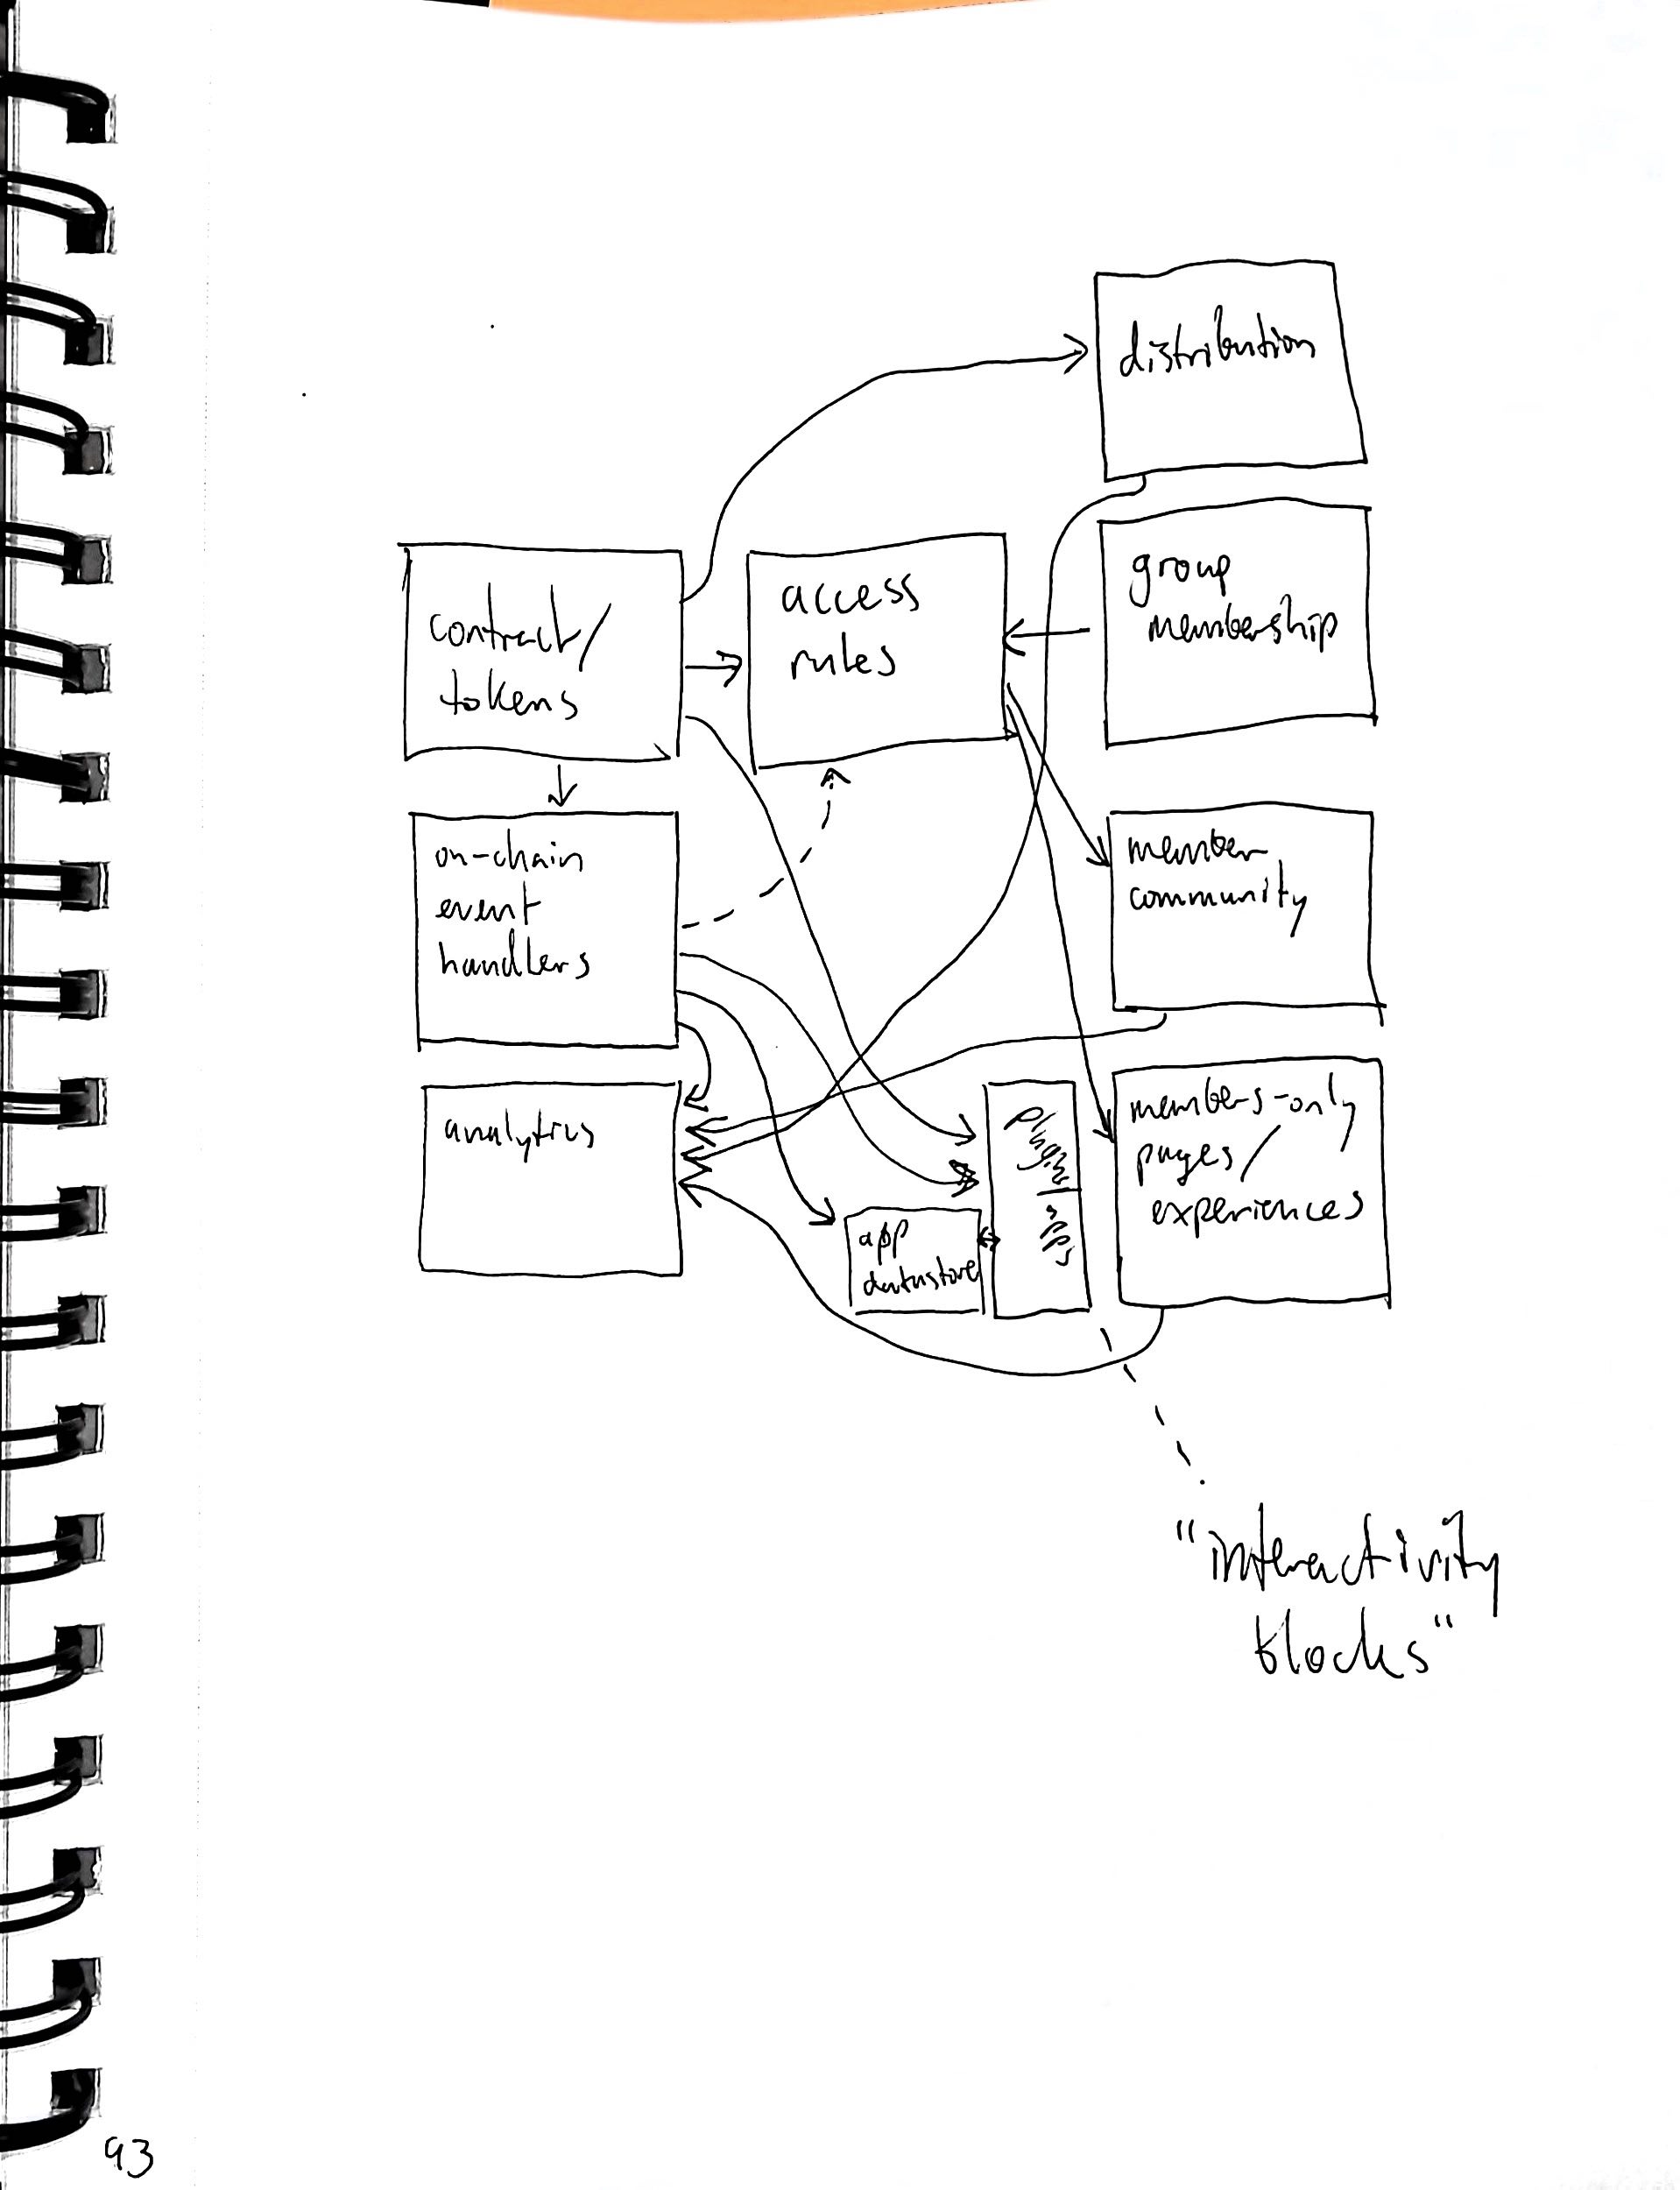 distribution
contract/
tokens
access
rules
group
membership
on-chain
event
handlers
member
community
analytics
app
datastore
plugins/
apps
members-only
pages/
experiences
"interactivity
blocks"
93